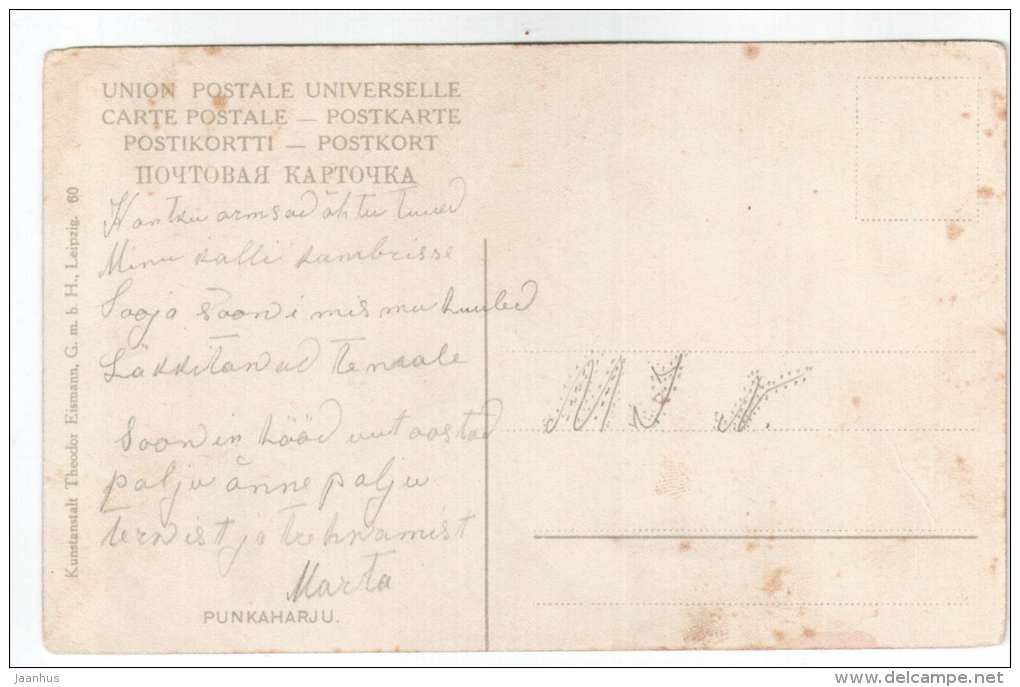 UNION POSTALE UNIVERSELLE
CARTE POSTALE — POSTKARTE
POSTIKORTTI — POSTKORT
ПОЧТОВАЯ КАРТОЧКА
Kunstanstalt Theodor Eismann, G. m. b. H., Leipzig. 60
armsad õhtu tuued
Minu kalli kambrisse
Sooja sooni mis mu huuled
Läkkitanad tensale
Soonin hääd uut aastad
palju õnne palju
tervist ja
Marta
PUNKAHARJU.
Jaanhus
www.delcampe.net